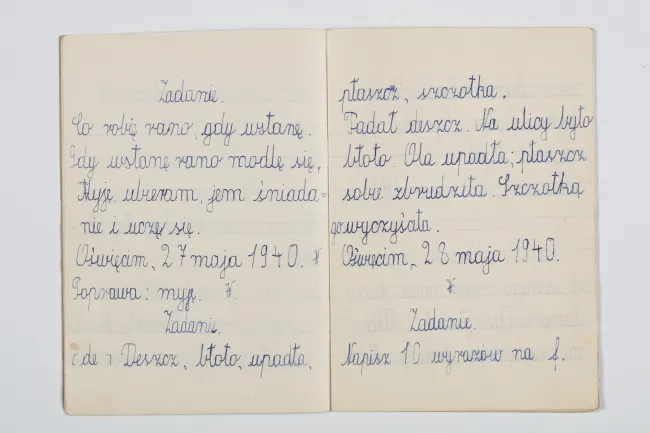 Zadanie.
Co robię rano, gdy wstanę.
Gdy wstanę rano modlę się,
Myję, ubieram, jem śniada=
nie i uczę się.
Oświęcim, 27 maja 1940.
Poprawa: myję.
Zadanie.
Deszcz, błoto, upadła,
płaszcz, szczotka.
Padał deszcz. Na ulicy było
błoto. Ola upadła; płaszcz
sobie zbrudziła. Szczotką
go wyczyściła.
Oświęcim, 28 maja 1940.
Zadanie.
Napisz 10 wyrazów na f.